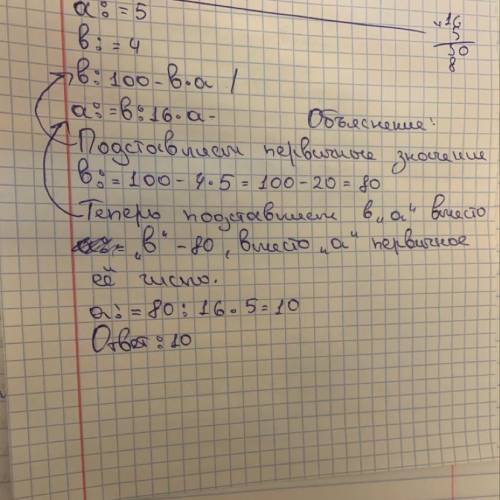 а:=5
в:=4
в:100-в·а /
а:=в:16·а-
Объяснение:
Подставляем первичные значение
в:=100-4·5=100-20=80
Теперь подставляем в „а" вместо
„в" -80, вместо „а" первичное
её число.
а:=80:16·5=10
Ответ:10
16
5
30
8